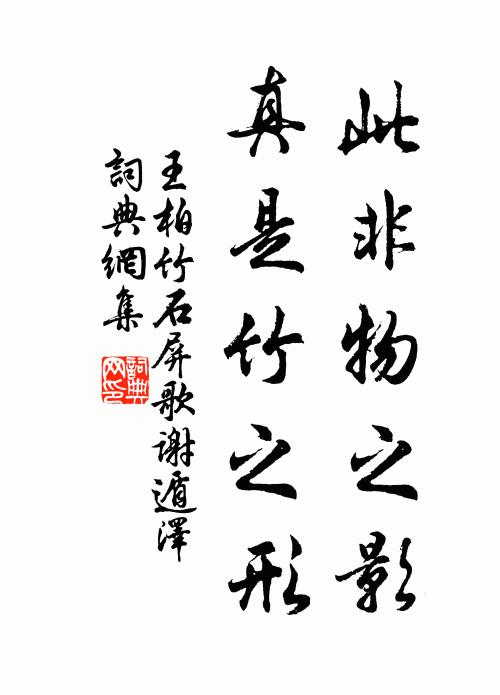 此非物之影
真是竹之形
王柏竹石屏歌謝遁澤
詞典網集
詞典
网印